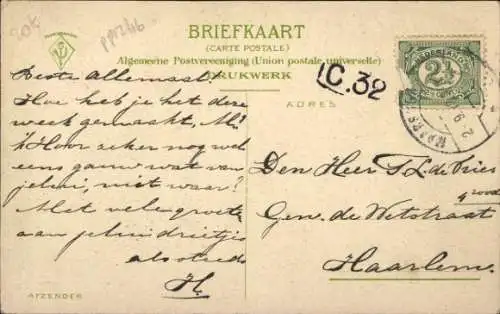 BRIEFKAART
(CARTE POSTALE)
Algemeene Postvereeniging (Union postale universelle)
DRUKWERK
ADRES
NEDERLAND
2½
C.32
Beste Allemaal
Hoe heb je het deze
week gemaakt, M!
'k Hoor zeker nog wel
eens gauw wat van
jelui, niet waar?
Met vele groeten
aan jelui drietjes
als steeds
H.
Den Heer S. L. de Vries
Gen. de Wetstraat
Haarlem.
AFZENDER